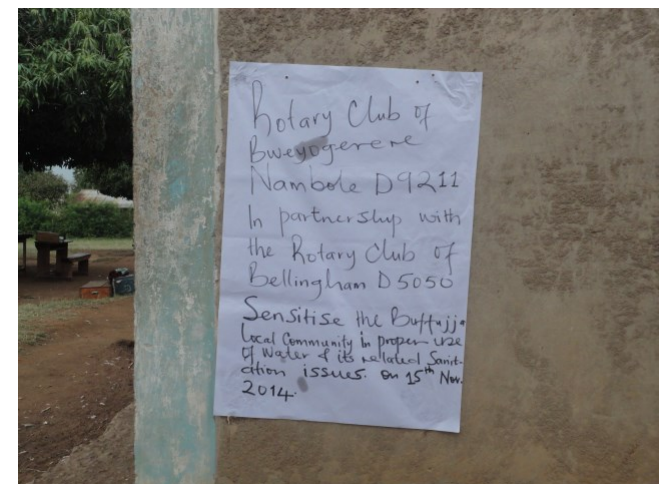 Rotary Club of
Bweyogerere
Nambole D9211
In partnership with
the Rotary Club of
Bellingham D5050
Sensitise the Buffujja
Local Community in proper use
of water & its related Sanit-
ation issues. on 15th Nov.
2014.